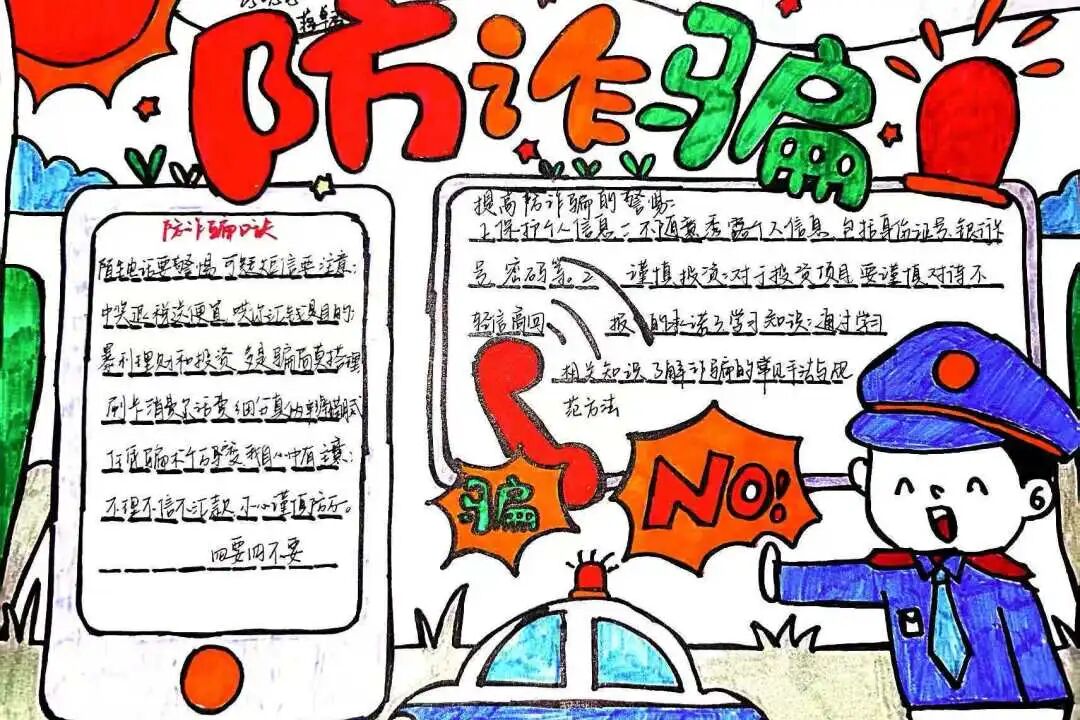 防诈骗
防诈骗口诀
陌生电话要警惕,可疑短信要注意:
中奖退税送便宜,哄你汇钱是目的:
暴利理财和投资,多是骗局莫搭理
刷卡消费了话费,细分真伪
任凭骗术千万变,我自心中有主意:
不理不信不汇款,小心谨慎防万。
四要四不要
提高防诈骗的警惕:
1.保护个人信息:不随意透露个人信息,包括身份证号,银行账
号,密码等。2 谨慎投资:对于投资项目,要谨慎对待不
轻信高回 报 的承诺3学习知识:通过学习
相关知识,了解诈骗的常见手法与
范方法
骗
NO!